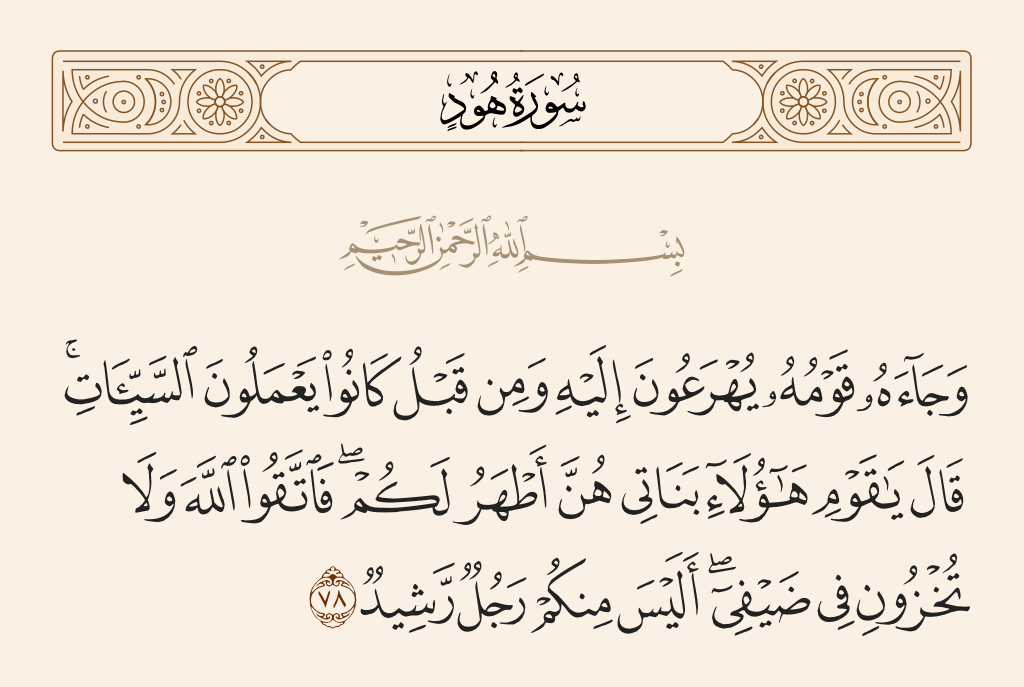 سُورَةُ هُودٍ
بِسْمِ ٱللَّهِ ٱلرَّحْمَٰنِ ٱلرَّحِيمِ
وَجَآءَهُۥ قَوْمُهُۥ يُهْرَعُونَ إِلَيْهِ وَمِن قَبْلُ كَانُوا۟ يَعْمَلُونَ ٱلسَّيِّـَٔاتِ ۚ
قَالَ يَـٰقَوْمِ هَـٰٓؤُلَآءِ بَنَاتِى هُنَّ أَطْهَرُ لَكُمْ ۖ فَٱتَّقُوا۟ ٱللَّهَ وَلَا
تُخْزُونِ فِى ضَيْفِىٓ ۖ أَلَيْسَ مِنكُمْ رَجُلٌ رَّشِيدٌ ٧٨